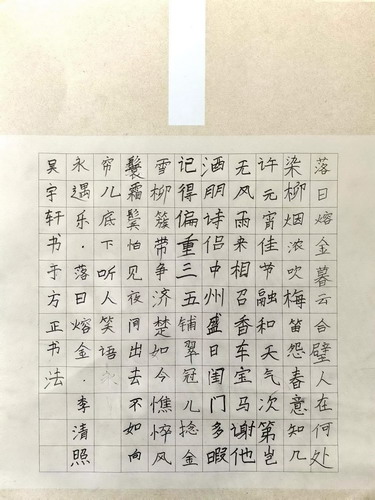 落日熔金暮云合璧人在何处
染柳烟浓吹梅笛怨春意知几
许元宵佳节融和天气次第岂
无风雨来相召香车宝马谢他
酒朋诗侣中州盛日闺门多暇
记得偏重三五铺翠冠儿捻金
雪柳簇带争济楚如今憔悴风
鬟霜鬓怕见夜间出去不如向
帘儿底下听人笑语
永遇乐·落日熔金·李清照
吴宇轩书于方正书法